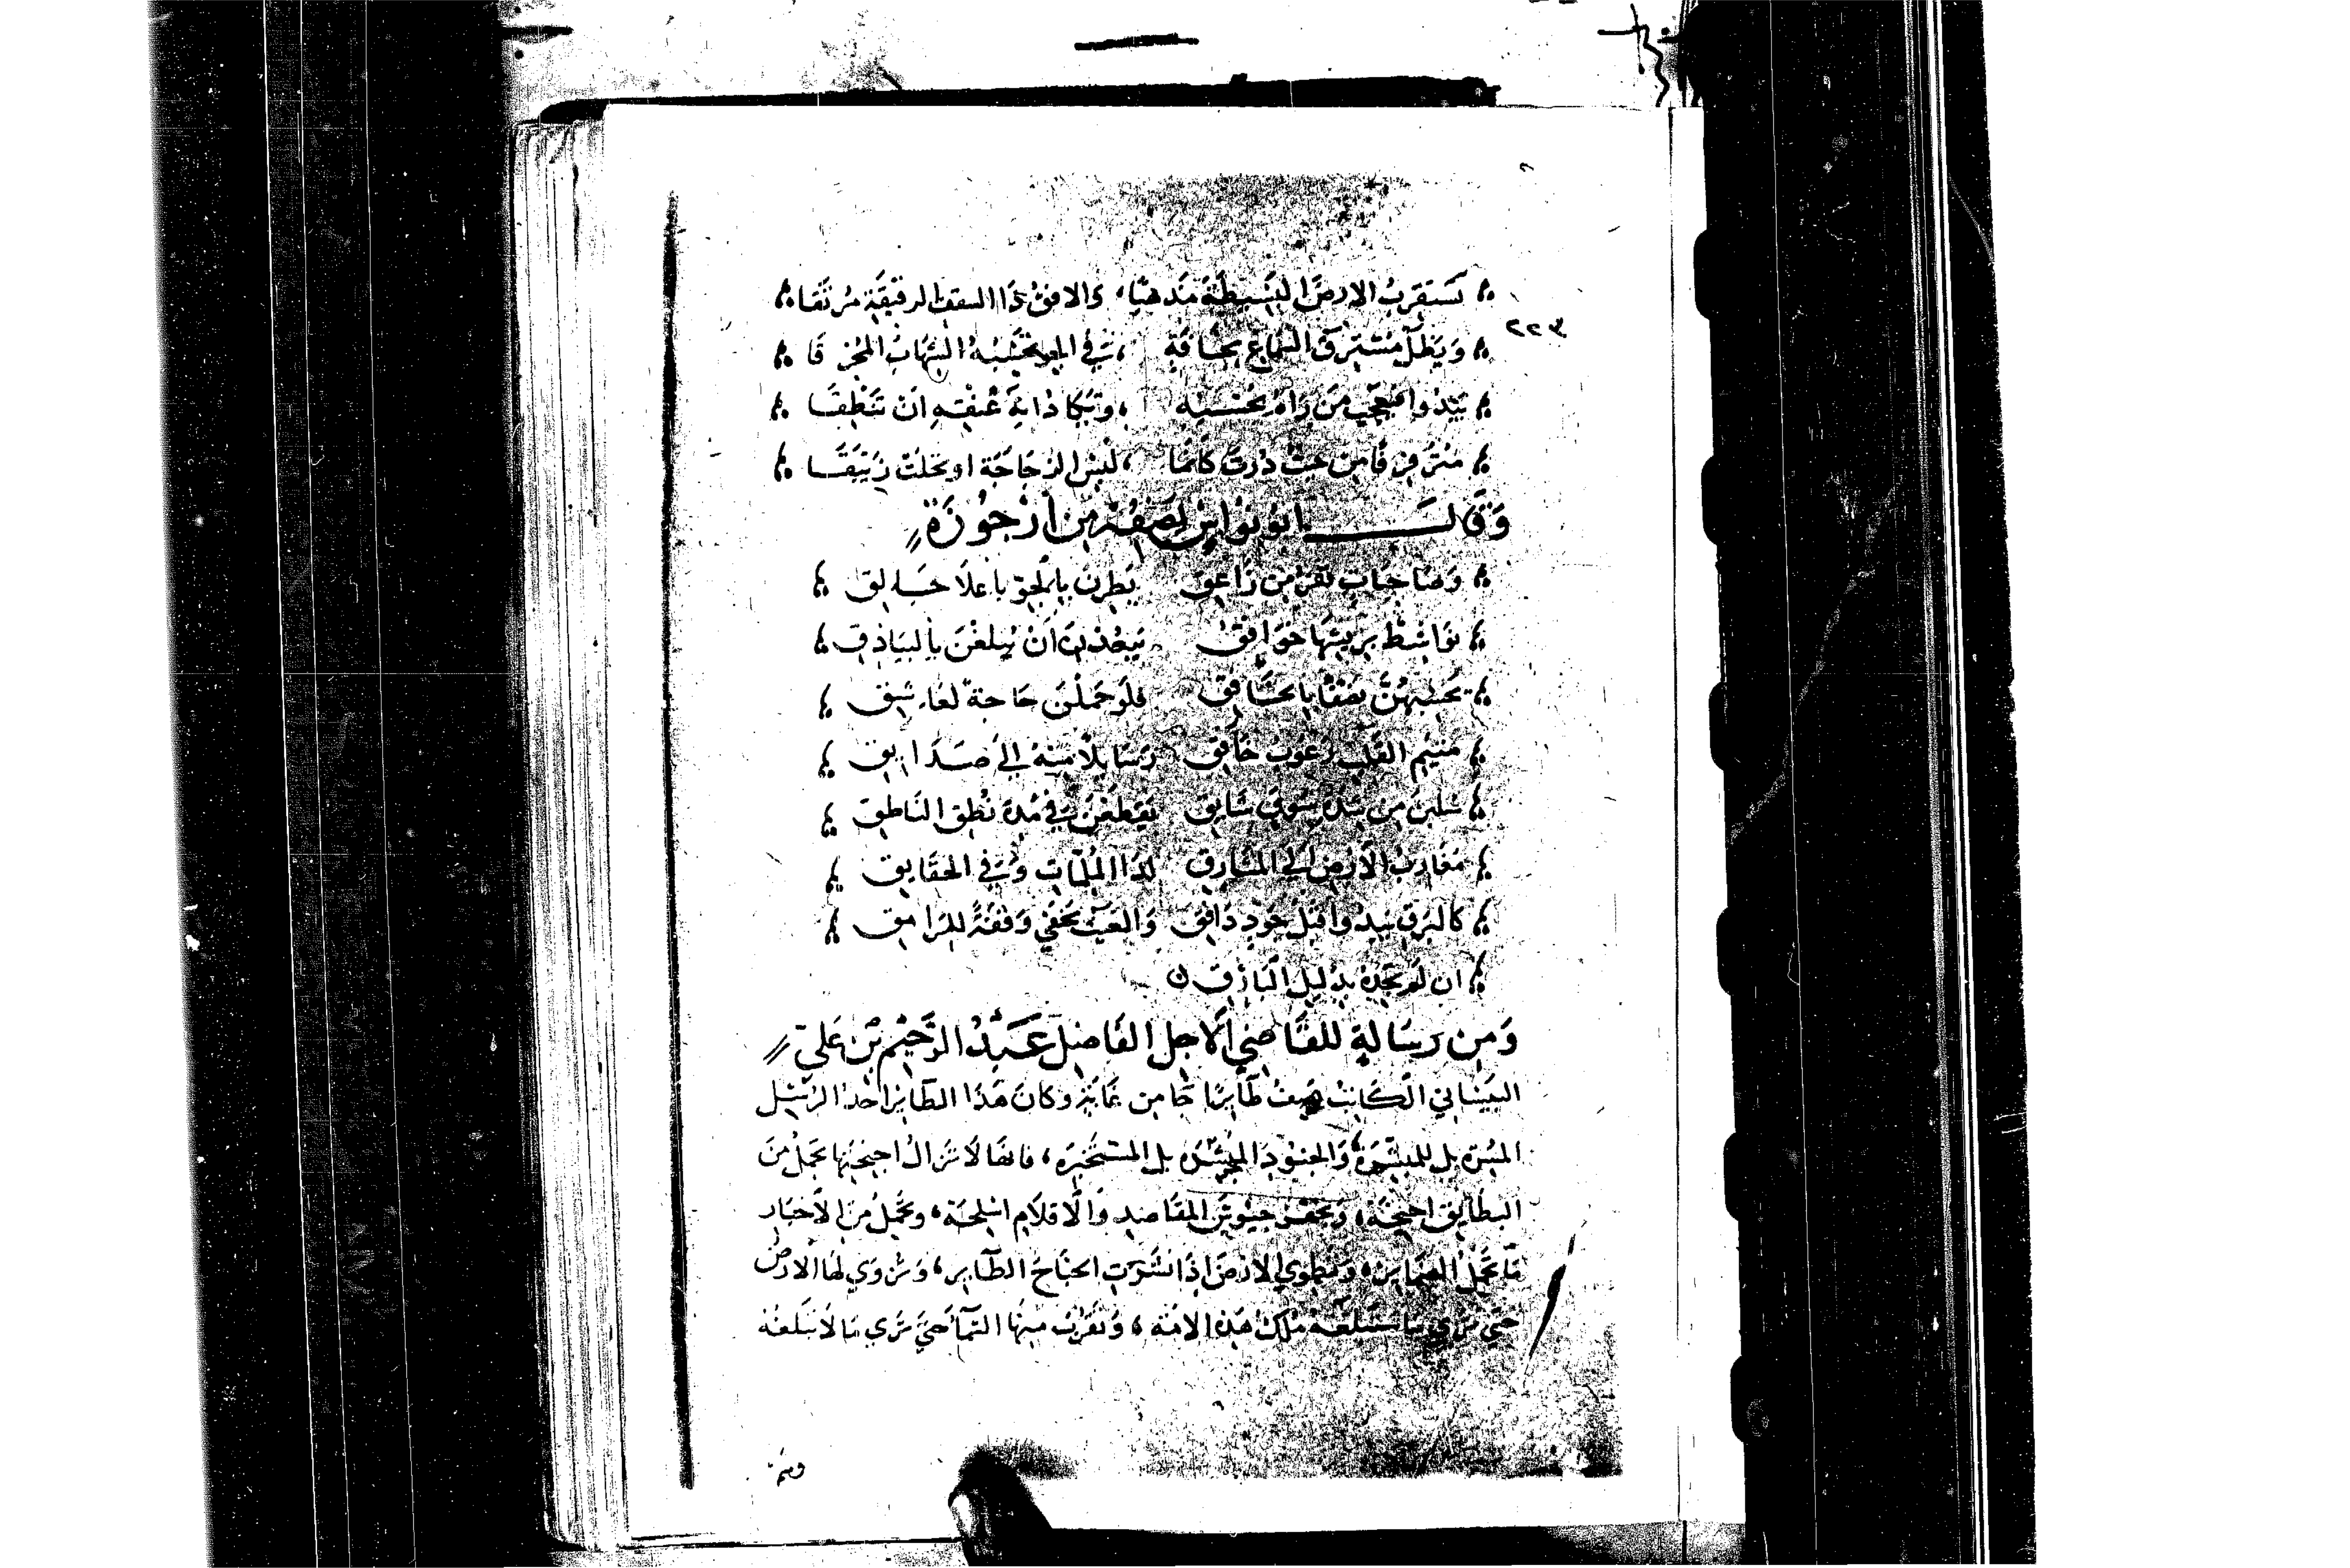 تستقرب الارض البسيطة مذهبا، والافق ذا السقف الرقيقة مرتقا
٢٢٣
ويظل مسترق السماع بخافة ، في الجو تحسبه الشهاب المحرقا
يبدو فيعجب من رآه بحسنه ، وتكاد اية عنقه ان تنطقا
مترقرقا من حيث درت كانما ، لبس الزجاجة او تجلت زيبقا
وقال ابو نواس يصفه من ارجوزة
يطرن بالجو باعلا حالق
نواشط حوافق يبعدن ان يبلغن بالبيادق
تحسبهن فلو حملن حاجة لعاشق
متيم القلب خافق
يقطعن في مدة نطق الناطق
مغارب الارض الى المشارق لذا الملمات وفي الحقايق
كالبرق يبدوا قبل جود دافق والغيث يخفي وقفة للرامق
ان لم تجده بدليل البارق
ومن رسالة للقاضي الاجل الفاضل عبد الرحيم بن علي
البيساني الكاتب يصف طايرا جا من غاية وكان هذا الطاير احد الرسل
المسيرة بل المبشرة، والجنود المجندة بل المسخرة، فانها لا تزال اجنحتها تحمل من
البطايق اجنحة، وتجهز جيوش المقاصد والاقلام اسلحة، وتحمل من الاخبار
ما تحمل الضماير، وتطوي الارض اذا نشرت الجناح الطاير، وتزوي لها الارض
حتى ترى ما سيبلغه ملك هذه الامة، وتقرب منها السما حتى ترى ما لا يبلغه